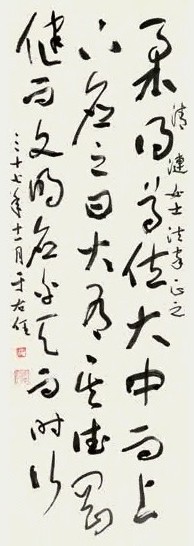 清漣女士法家正之
柔得尊位大中而上
下應之曰大有其德剛
健而文明應乎天而時行
三十七年十一月于右任